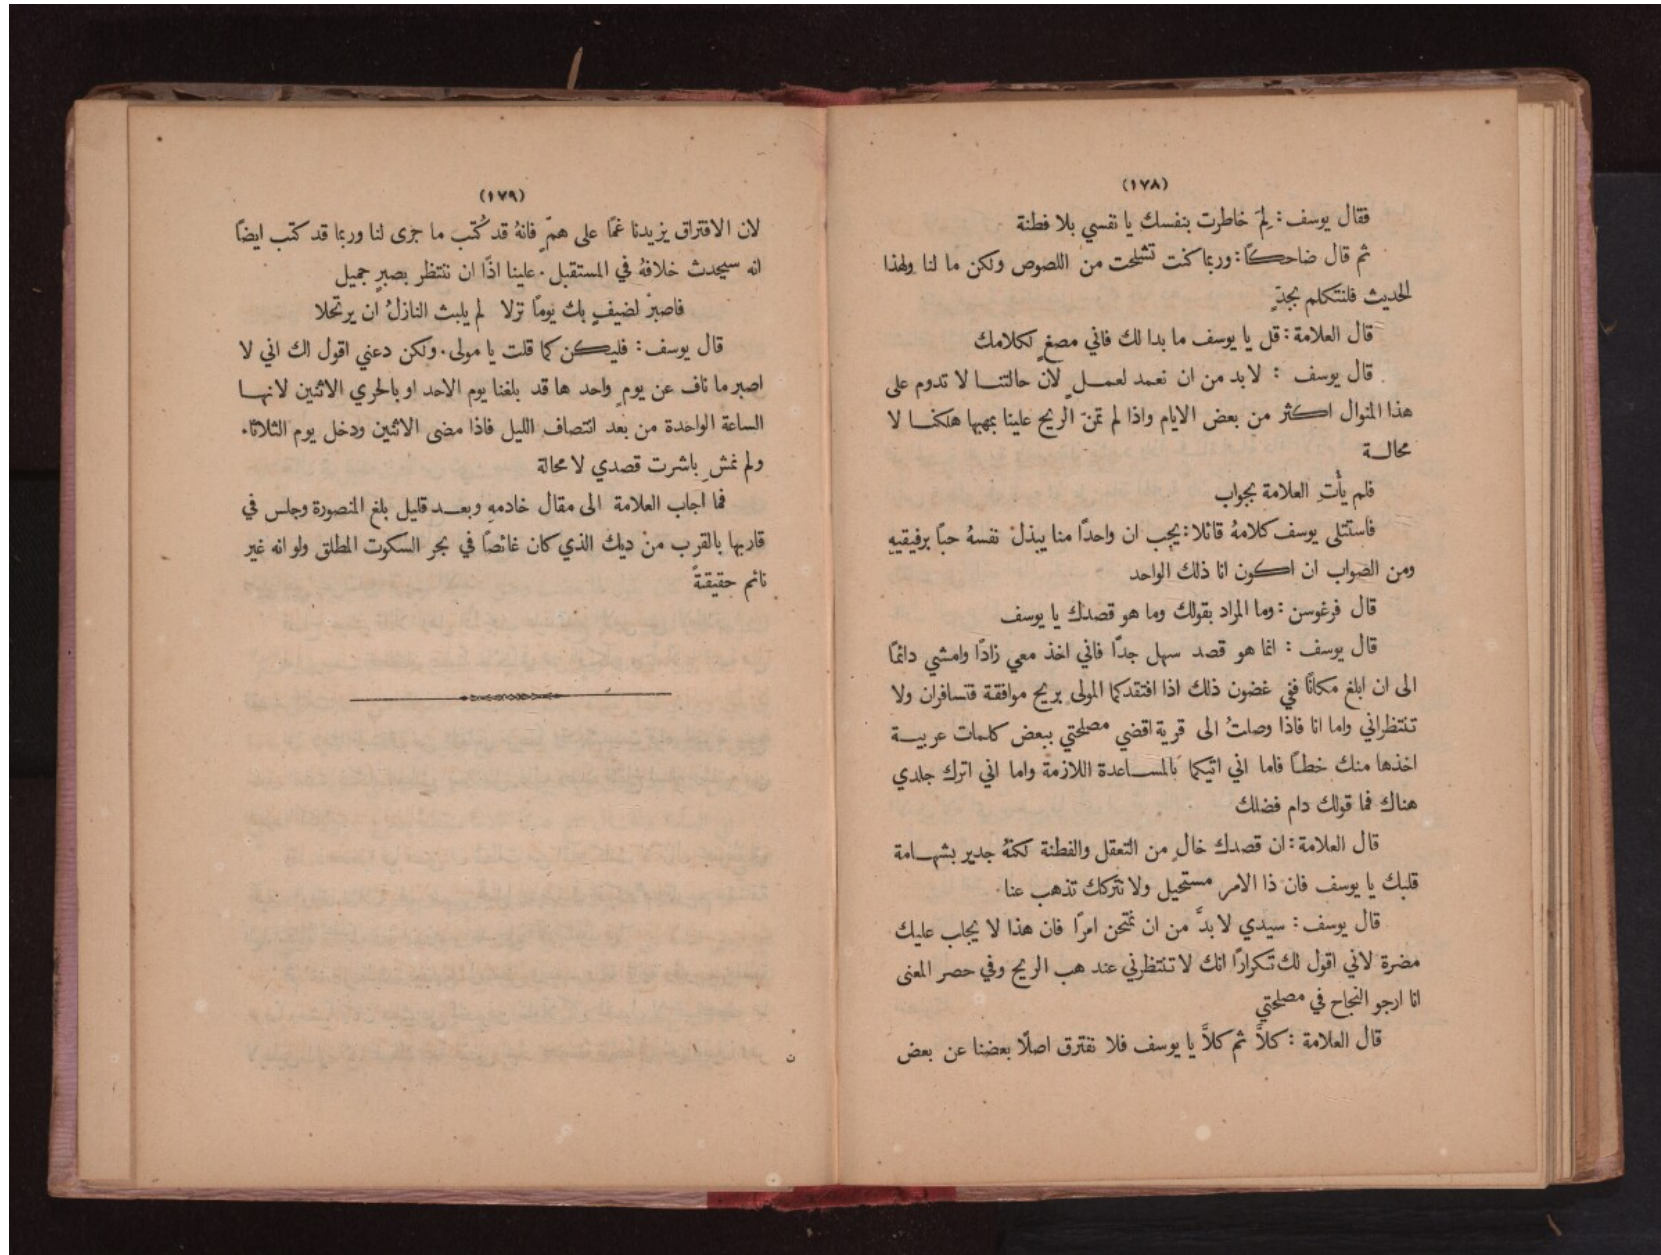 (١٧٨)
فقال يوسف: لِمَ خاطرت بنفسك يا نفسي بلا فطنة
ثم قال ضاحكًا: وربما كنت تشلحت من اللصوص ولكن ما لنا ولهذا
الحديث فلنتكلم بجدٍّ
قال العلامة: قل يا يوسف ما بدا لك فاني مصغٍ لكلامك
قال يوسف : لابد من ان نعمد لعملٍ لان حالتنا لا تدوم على
هذا المنوال اكثر من بعض الايام واذا لم تمنّ الريح علينا بمهبها هلكنا لا
محالة
فلم يأْتِ العلامة بجواب
فاستتلى يوسف كلامهُ قائلا: يجب ان واحدًا منا يبذل نفسهُ حبًا برفيقيهِ
ومن الصواب ان اكون انا ذلك الواحد
قال فرغوسن: وما المراد بقولك وما هو قصدك يا يوسف
قال يوسف : انما هو قصد سهل جدًا فاني اخذ معي زادًا وامشي دائمًا
الى ان ابلغ مكانًا ففي غضون ذلك اذا افتقدكما المولى بريح موافقة فتسافران ولا
تنتظراني واما انا فاذا وصلتُ الى قرية اقضي مصلحتي ببعض كلمات عربية
اخذها منك خطًا فاما اني اتيكما بالمساعدة اللازمة واما اني اترك جلدي
هناك فما قولك دام فضلك
قال العلامة: ان قصدك خالٍ من التعقل والفطنة لكنهُ جدير بشهامة
قلبك يا يوسف فان ذا الامر مستحيل ولا نتركك تذهب عنا.
قال يوسف: سيدي لا بدَّ من ان نمتحن امرًا فان هذا لا يجلب عليك
مضرة لاني اقول لك تكرارًا انك لا تنتظرني عند هب الريح وفي حصر المعنى
انا ارجو النجاح في مصلحتي
قال العلامة : كلاَّ ثم كلاَّ يا يوسف فلا نفترق اصلًا بعضنا عن بعض
(١٧٩)
لان الافتراق يزيدنا غمًا على همٍّ فانهُ قد كُتب ما جرى لنا وربما قد كتب ايضًا
انه سيحدث خلافهُ في المستقبل. علينا اذًا ان ننتظر بصبرٍ جميل
فاصبرْ لضيفٍ بك يومًا نزلا لم يلبث النازلُ ان يرتحلا
قال يوسف: فليكن كما قلت يا مولى. ولكن دعني اقول لك اني لا
اصبر ما ناف عن يومٍ واحد ها قد بلغنا يوم الاحد او بالحري الاثنين لانها
الساعة الواحدة من بعد انتصاف الليل فاذا مضى الاثنين ودخل يوم الثلاثا.
ولم نمشِ باشرت قصدي لا محالة
فما اجاب العلامة الى مقال خادمهِ وبعد قليل بلغ المنصورة وجلس في
قاربها بالقرب من ديك الذي كان غائصًا في بحر السكوت المطلق ولو انه غير
نائم حقيقةً
ن